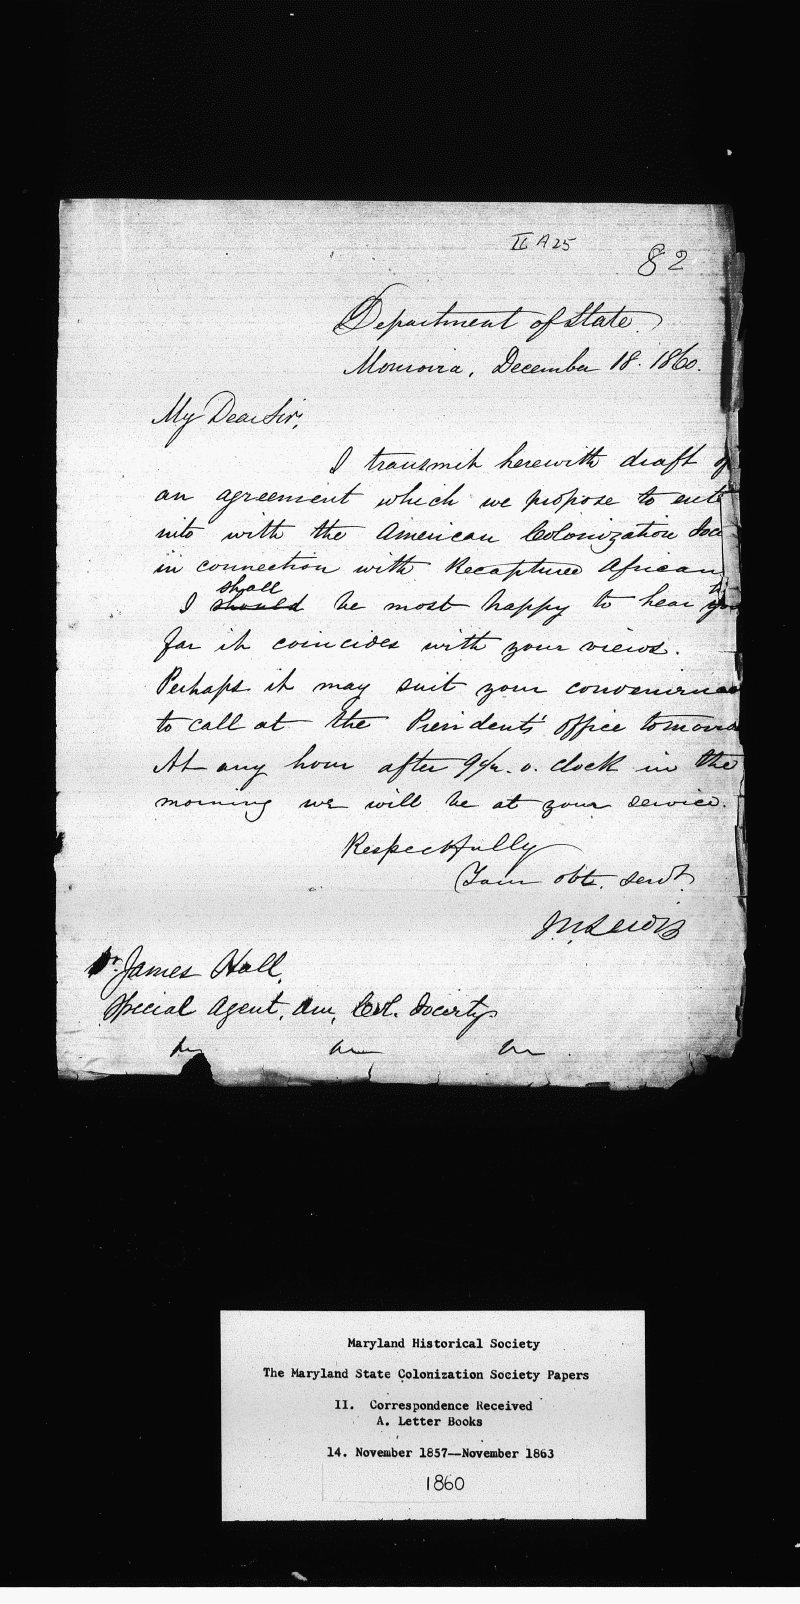 II A 25
82
Department of State
Monrovia, December 18. 1860.
My Dear Sir,
I transmit herewith draft of
an agreement which we propose to ente
into with the American Colonization Soci
in connection with Recaptured African
shall
I should be most happy to hear
far it coincides with your views.
Perhaps it may suit your convenience
to call at the Presidents' office tomorro
At any hour after 9 o. clock in the
morning we will be at your service.
Respectfully
Your obt. servt.
J.N. Lewis
Dr. James Hall,
Special Agent, Am, Col. Society
Maryland Historical Society
The Maryland State Colonization Society Papers
II. Correspondence Received
A. Letter Books
14. November 1857--November 1863
1860